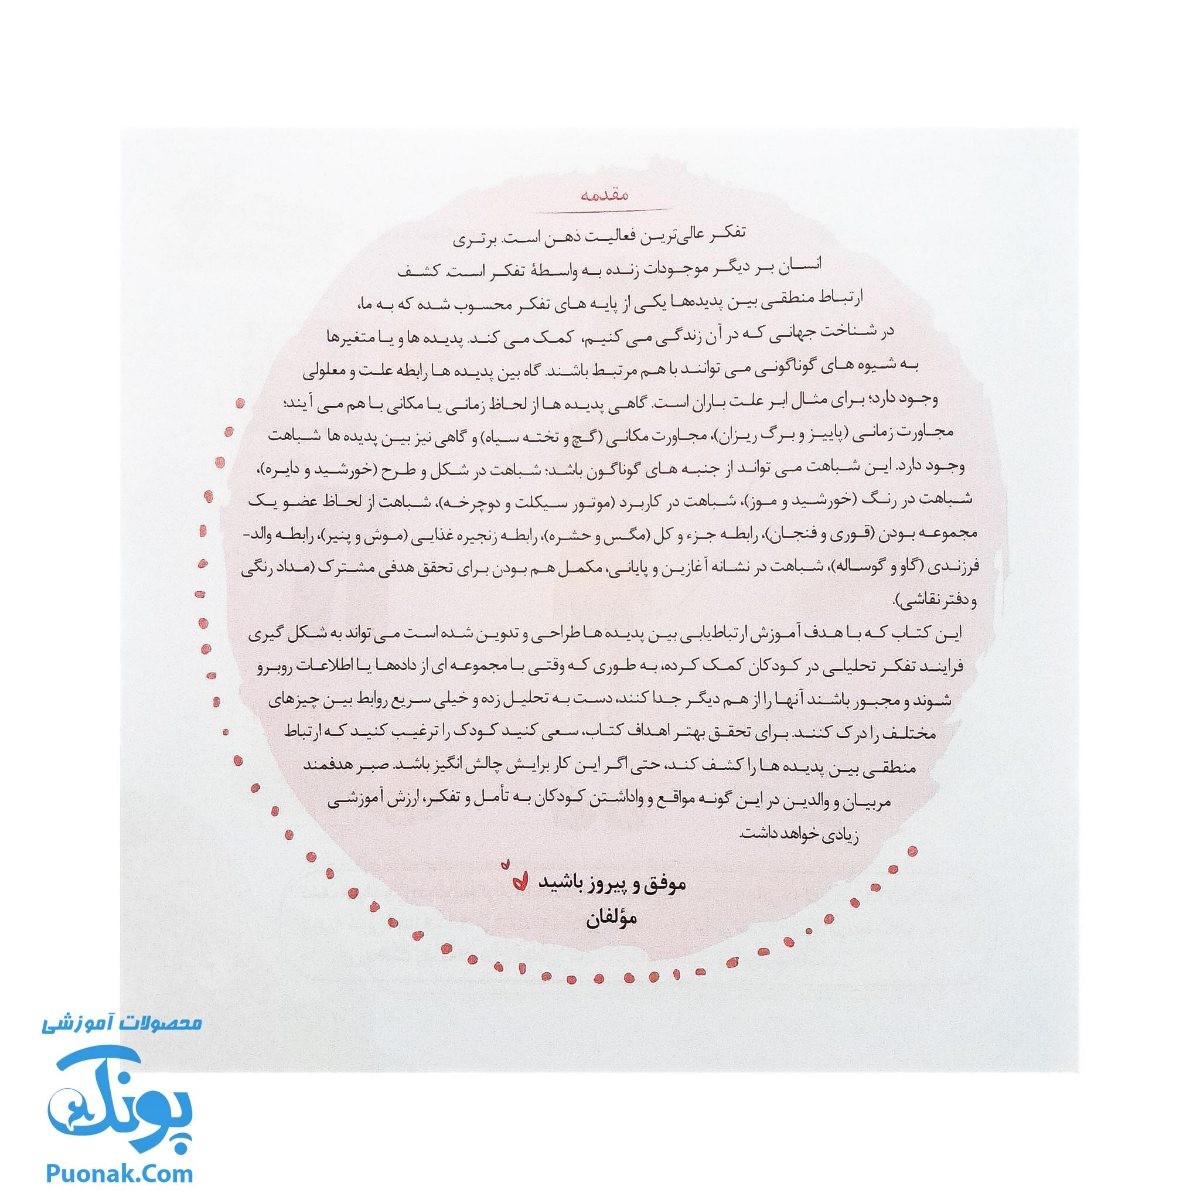 مقدمه
تفکر عالی‌ترین فعالیت ذهن است. برتری
انسان بر دیگر موجودات زنده به واسطهٔ تفکر است. کشف
ارتباط منطقی بین پدیده‌ها یکی از پایه های تفکر محسوب شده که به ما،
در شناخت جهانی که در آن زندگی می کنیم، کمک می کند. پدیده ها و یا متغیرها
به شیوه های گوناگونی می توانند با هم مرتبط باشند. گاه بین پدیده ها رابطه علت و معلولی
وجود دارد؛ برای مثال ابر علت باران است. گاهی پدیده ها از لحاظ زمانی یا مکانی با هم می آیند؛
مجاورت زمانی (پاییز و برگ ریزان)، مجاورت مکانی (گچ و تخته سیاه) و گاهی نیز بین پدیده ها شباهت
وجود دارد. این شباهت می تواند از جنبه های گوناگون باشد؛ شباهت در شکل و طرح (خورشید و دایره)،
شباهت در رنگ (خورشید و موز)، شباهت در کاربرد (موتور سیکلت و دوچرخه)، شباهت از لحاظ عضو یک
مجموعه بودن (قوری و فنجان)، رابطه جزء و کل (مگس و حشره)، رابطه زنجیره غذایی (موش و پنیر)، رابطه والد-
فرزندی (گاو و گوساله)، شباهت در نشانه آغازین و پایانی، مکمل هم بودن برای تحقق هدفی مشترک (مداد رنگی
و دفتر نقاشی).
این کتاب که با هدف آموزش ارتباط‌یابی بین پدیده ها طراحی و تدوین شده است می تواند به شکل گیری
فرایند تفکر تحلیلی در کودکان کمک کرده، به طوری که وقتی با مجموعه ای از داده‌ها یا اطلاعات روبرو
شوند و مجبور باشند آنها را از هم دیگر جدا کنند، دست به تحلیل زده و خیلی سریع روابط بین چیزهای
مختلف را درک کنند. برای تحقق بهتر اهداف کتاب، سعی کنید کودک را ترغیب کنید که ارتباط
منطقی بین پدیده ها را کشف کند، حتی اگر این کار برایش چالش انگیز باشد. صبر هدفمند
مربیان و والدین در این گونه مواقع و واداشتن کودکان به تأمل و تفکر، ارزش آموزشی
زیادی خواهد داشت.
موفق و پیروز باشید
مؤلفان
محصولات آموزشی
پونک
Puonak.Com